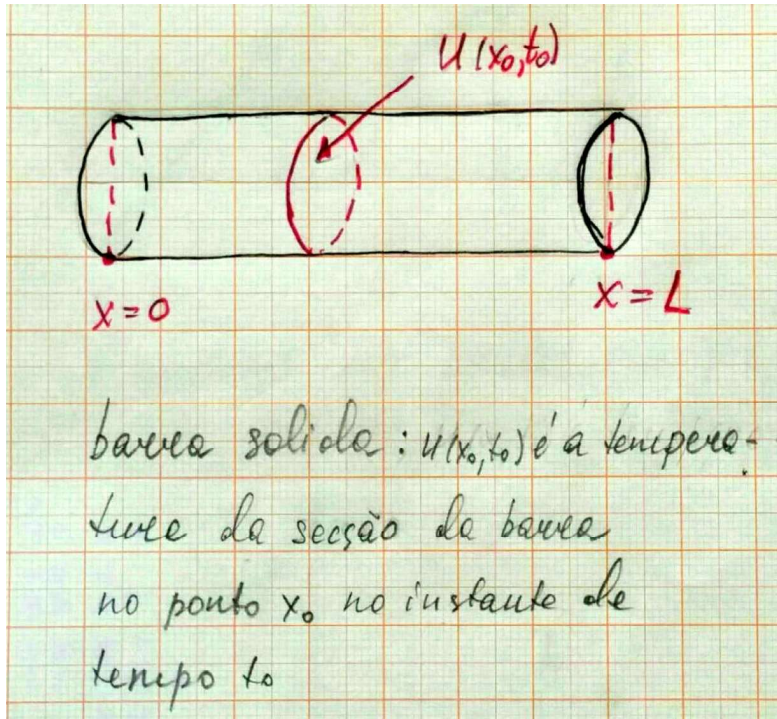 u(x₀,t₀)
x=0
x=L
barra solida: u(x₀,t₀) é a tempera-
tura da secção da barra
no ponto x₀ no instante de
tempo t₀